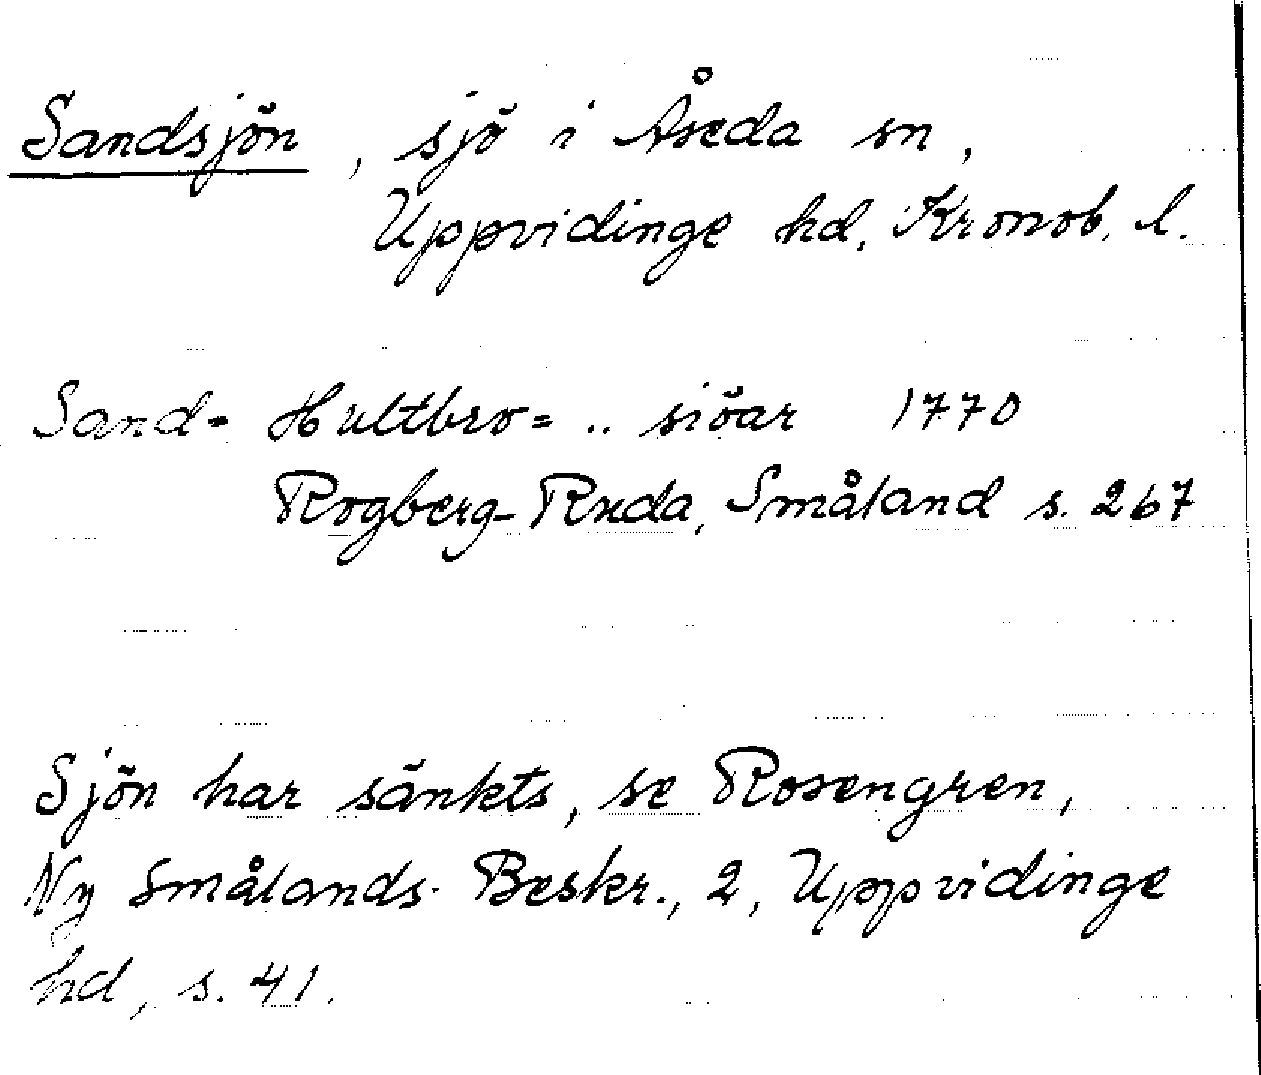 Sandsjön, sjö i Åseda sn,
Uppvidinge hd, Kronob. l.
Sand= Hultbro= .. siöar 1770
Rogberg-Ruda, Småland s. 267
Sjön har sänkts, se Rosengren,
Ny Smålands Beskr., 2, Uppvidinge
hd, s. 41.